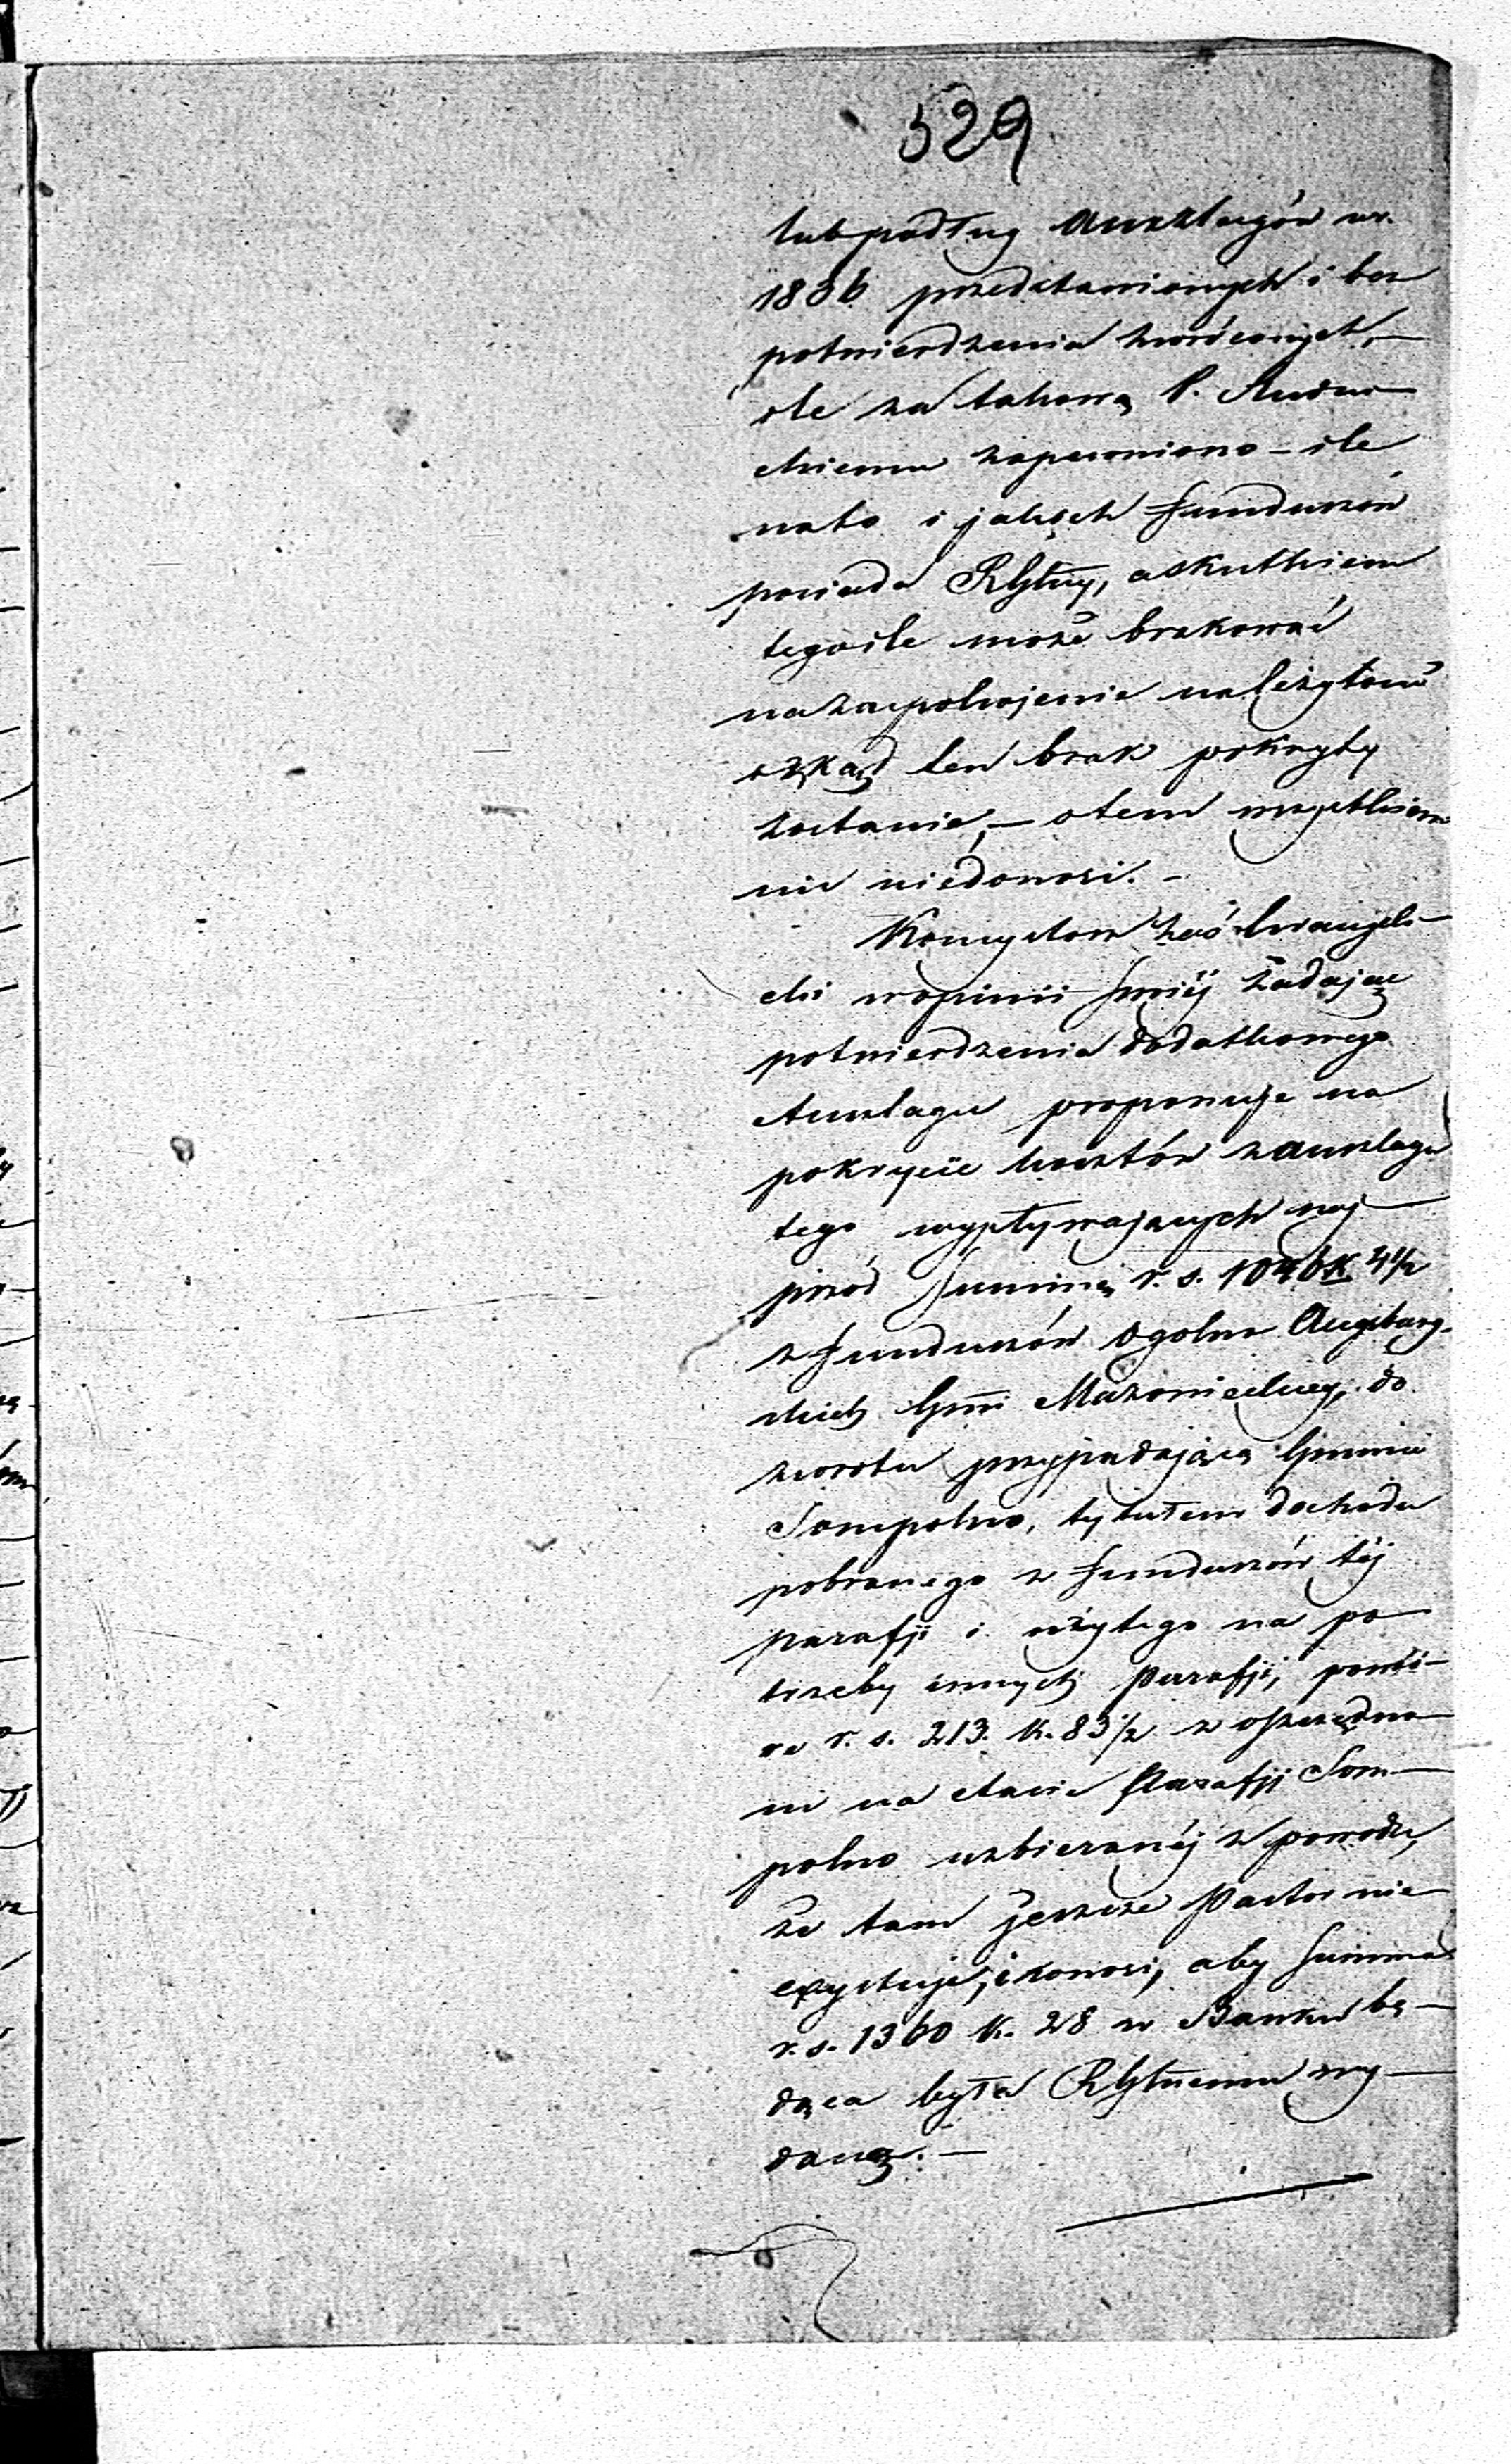 529
lub podług Anszlagów w r.
1836 przedstawionych i bez
potwierdzenia zwróconych,—
ile za takową P.
skiemu zapewniono – ile
na to i jakich funduszów
posiada RGłny, a skutkiem
tego ile może brakować
na zaspokojenie należytości
i zkąd ten brak pokryty
zostanie,— o tem wszystkiem
nie niedonosi.–
Konsystorz zaś Ewangeli–
cki w opinii swéj żądając
potwierdzenia dodatkowego
Anszlagu proponuje na
pokrycie kosztów z anszlagu
tego wypływających naj–
przód Summę r. s. 1046 K 4½
z funduszów ogolno Augsburg-
skich Gmi Mazowieckiej, do
zwrotu przypadającą Gminie
Sompolno, tytułem dochodu
pobranego z funduszów téj
parafji i użytego na po–
trzeby innych parafji; powtó–
re r. s. 213. K. 83½ z oszczędno–
ści na etacie Parafji Som–
polno uzbieranéj z powodu,
że tam jeszcze Pastor nie
exystuje, i wnosi, aby Summa
r. s. 1360 K. 28 w Banku bę–
dąca była RGłnemu wy–
daną.—